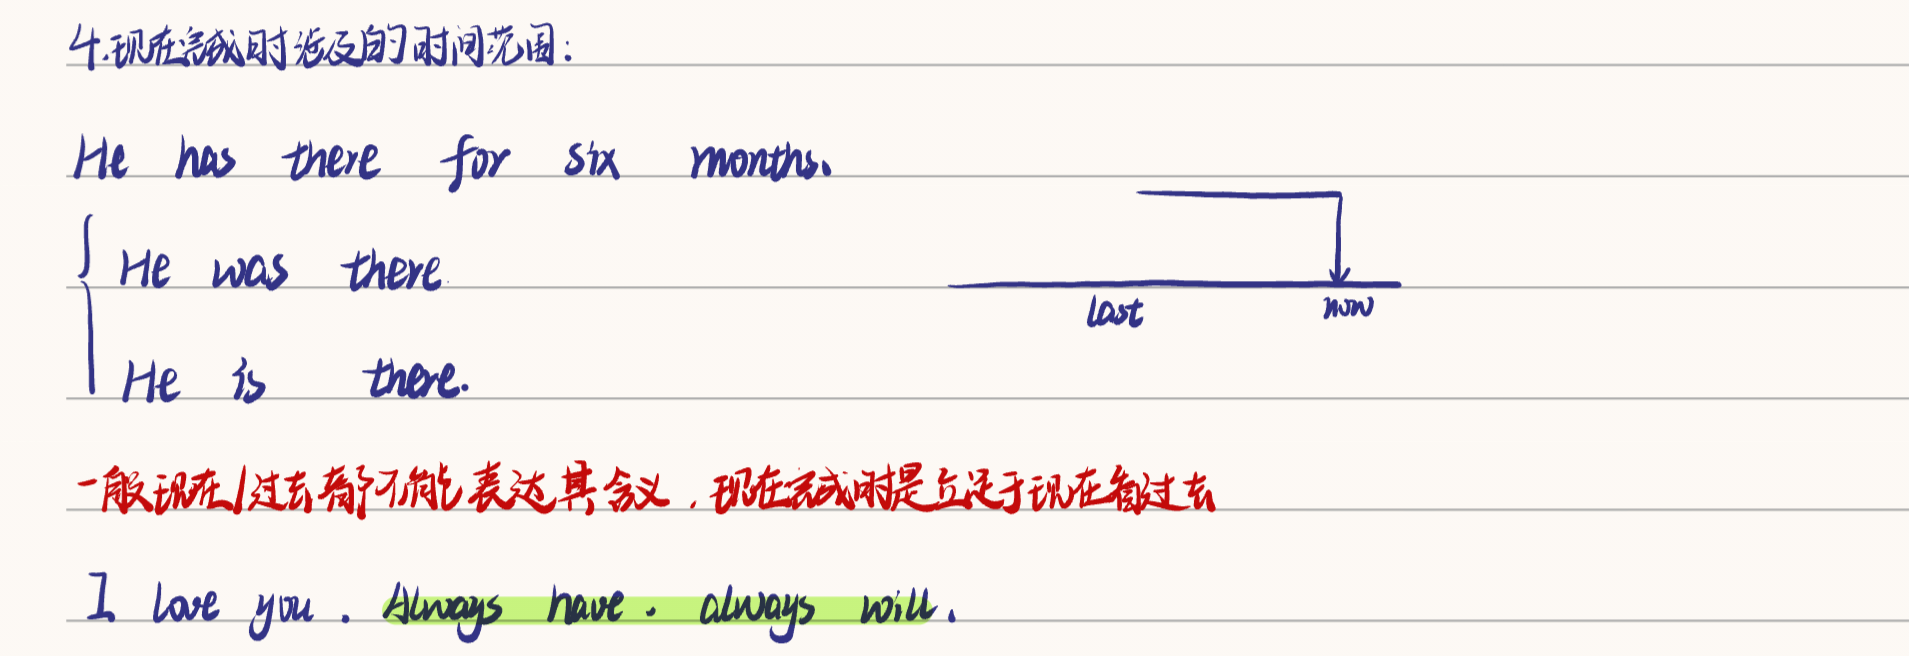 4.现在完成时涉及的时间范围:
He has there for six months.
He was there.
last now
He is there.
一般现在/过去都不能表达其含义,现在完成时是立足于现在看过去
I love you. Always have. always will.